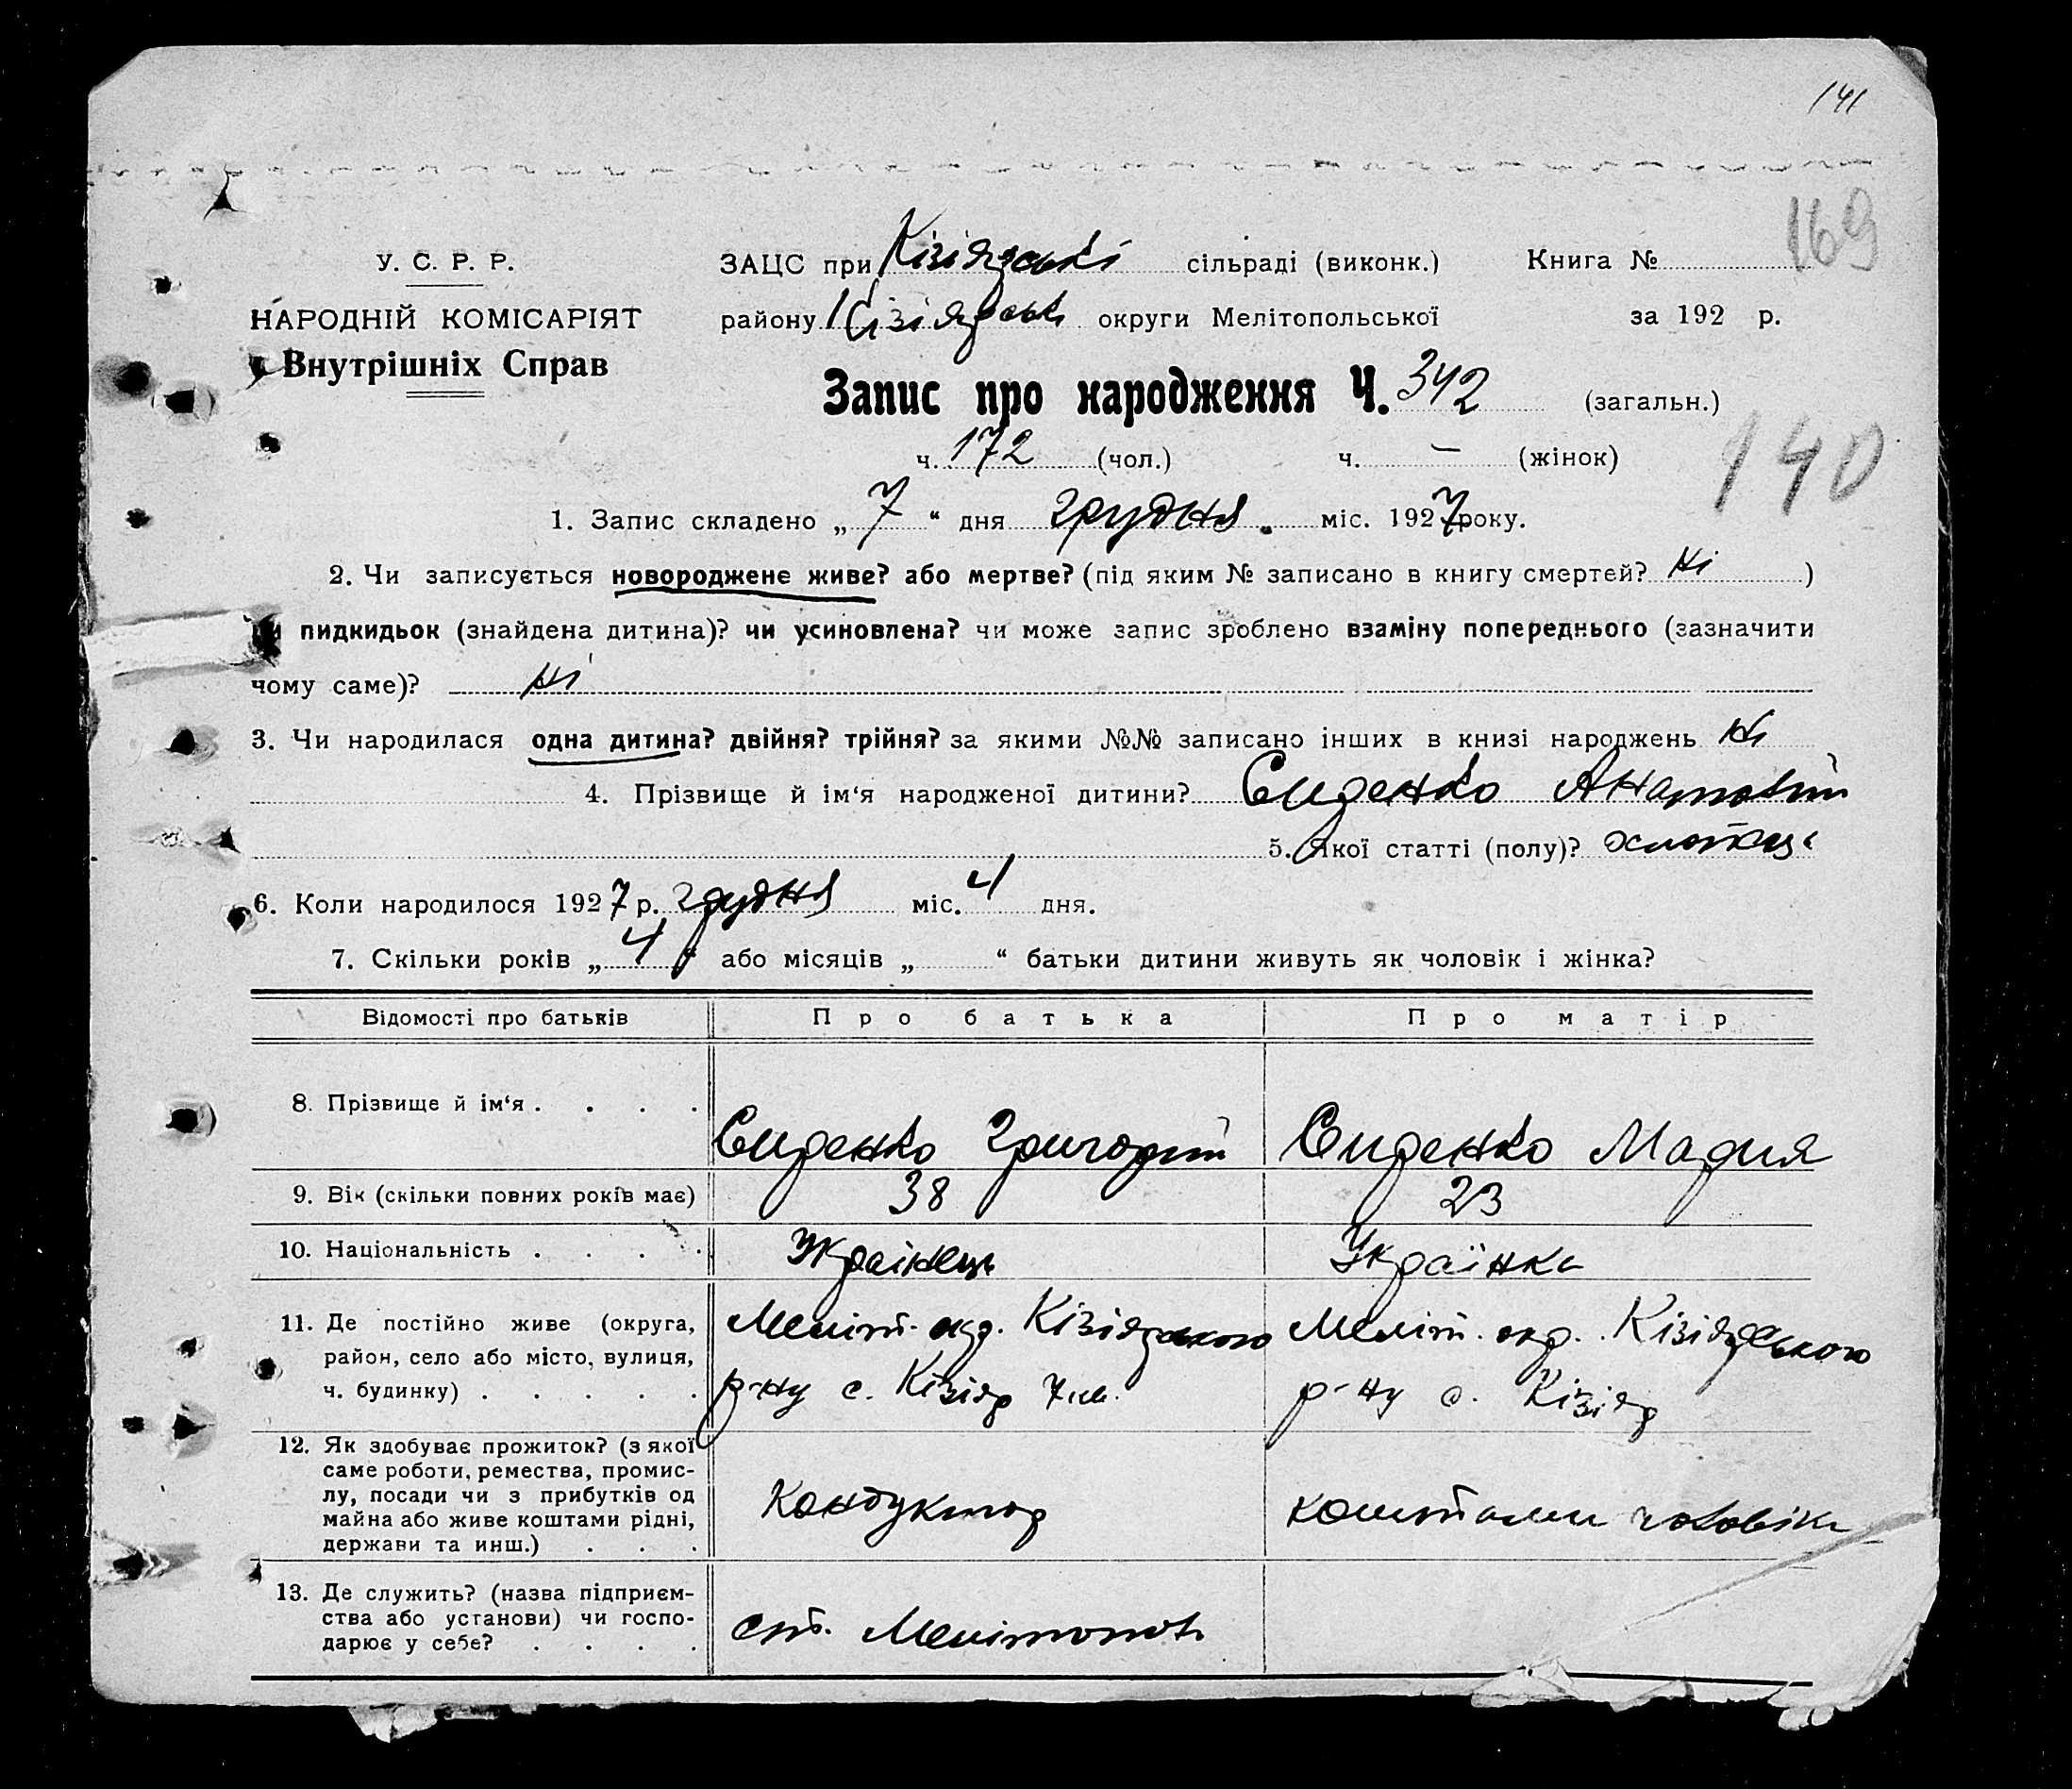 141
169
У. С. Р. Р.
НАРОДНІЙ КОМІСАРІЯТ
Внутрішніх Справ
ЗАЦС при Кізіярські сільраді (виконк.) Книга №
району Кізіярськ округи Мелітопольської за 192 р.
Запис про народження Ч. 342 (загальн.)
ч. 172 (чол.) ч. — (жінок)
140
1. Запис складено „ 7 “ дня грудня міс. 1927 року.
2. Чи записується новороджене живе? або мертве? (під яким № записано в книгу смертей? Ні )
пидкидьок (знайдена дитина)? чи усиновлена? чи може запис зроблено взаміну попереднього (зазначити
чому саме)? Ні
3. Чи народилася одна дитина? двійня? трійня? за якими №№ записано інших в книзі народжень Ні
4. Прізвище й ім‘я народженої дитини? Сиденко Анатолій
5. Якої статті (полу)?
6. Коли народилося 1927 р. грудня міс. 4 дня.
7. Скільки років „ 4 “ або місяців „ “ батьки дитини живуть як чоловік і жінка?
Відомості про батьків Про батька Про матір
8. Прізвище й ім‘я . . . . Сиденко Григорій Сиденко Мария
9. Вік (скільки повних років має) 38 23
10. Національність . . . . Українець Українка
11. Де постійно живе (округа, район, село або місто, вулиця, ч. будинку) . . . . . Меліт. окр. Кізіярського р-ну с. Кізіяр Меліт. окр. Кізіярського р-ну с. Кізіяр
12. Як здобуває прожиток? (з якої саме роботи, ремества, промис-лу, посади чи з прибутків од майна або живе коштами рідні, держави та инш.) . . . Кондуктор коштами чоловіка
13. Де служить? (назва підприєм-ства або установи) чи госпо-дарює у себе? . . . . ст. Мелітополь